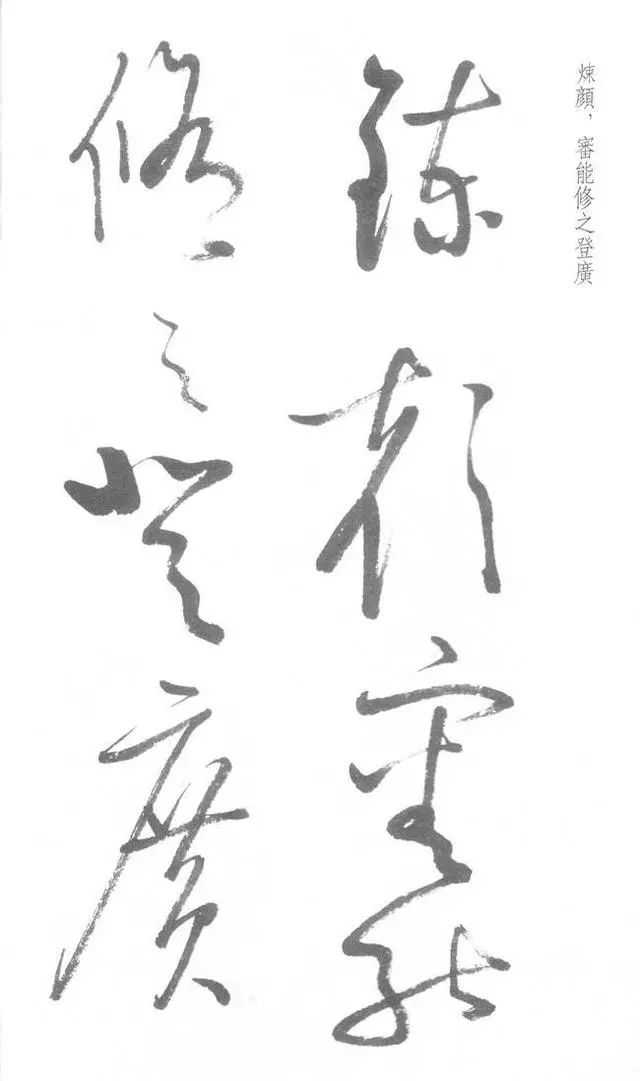 煉顏，審能修之登廣
鍊顏審能
脩之登廣